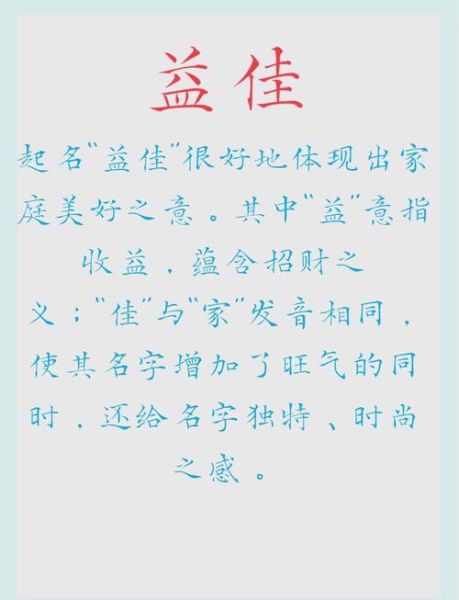 益佳
起名“益佳”很好地体现出家
庭美好之意。其中“益”意指
收益，蕴含招财之
义；“佳”与“家”发音相同，
使其名字增加了旺气的同
时，还给名字独特、时尚
之感。